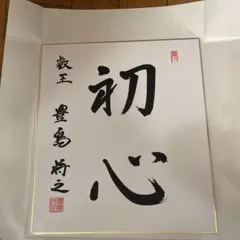 初心
叡王 豊島将之